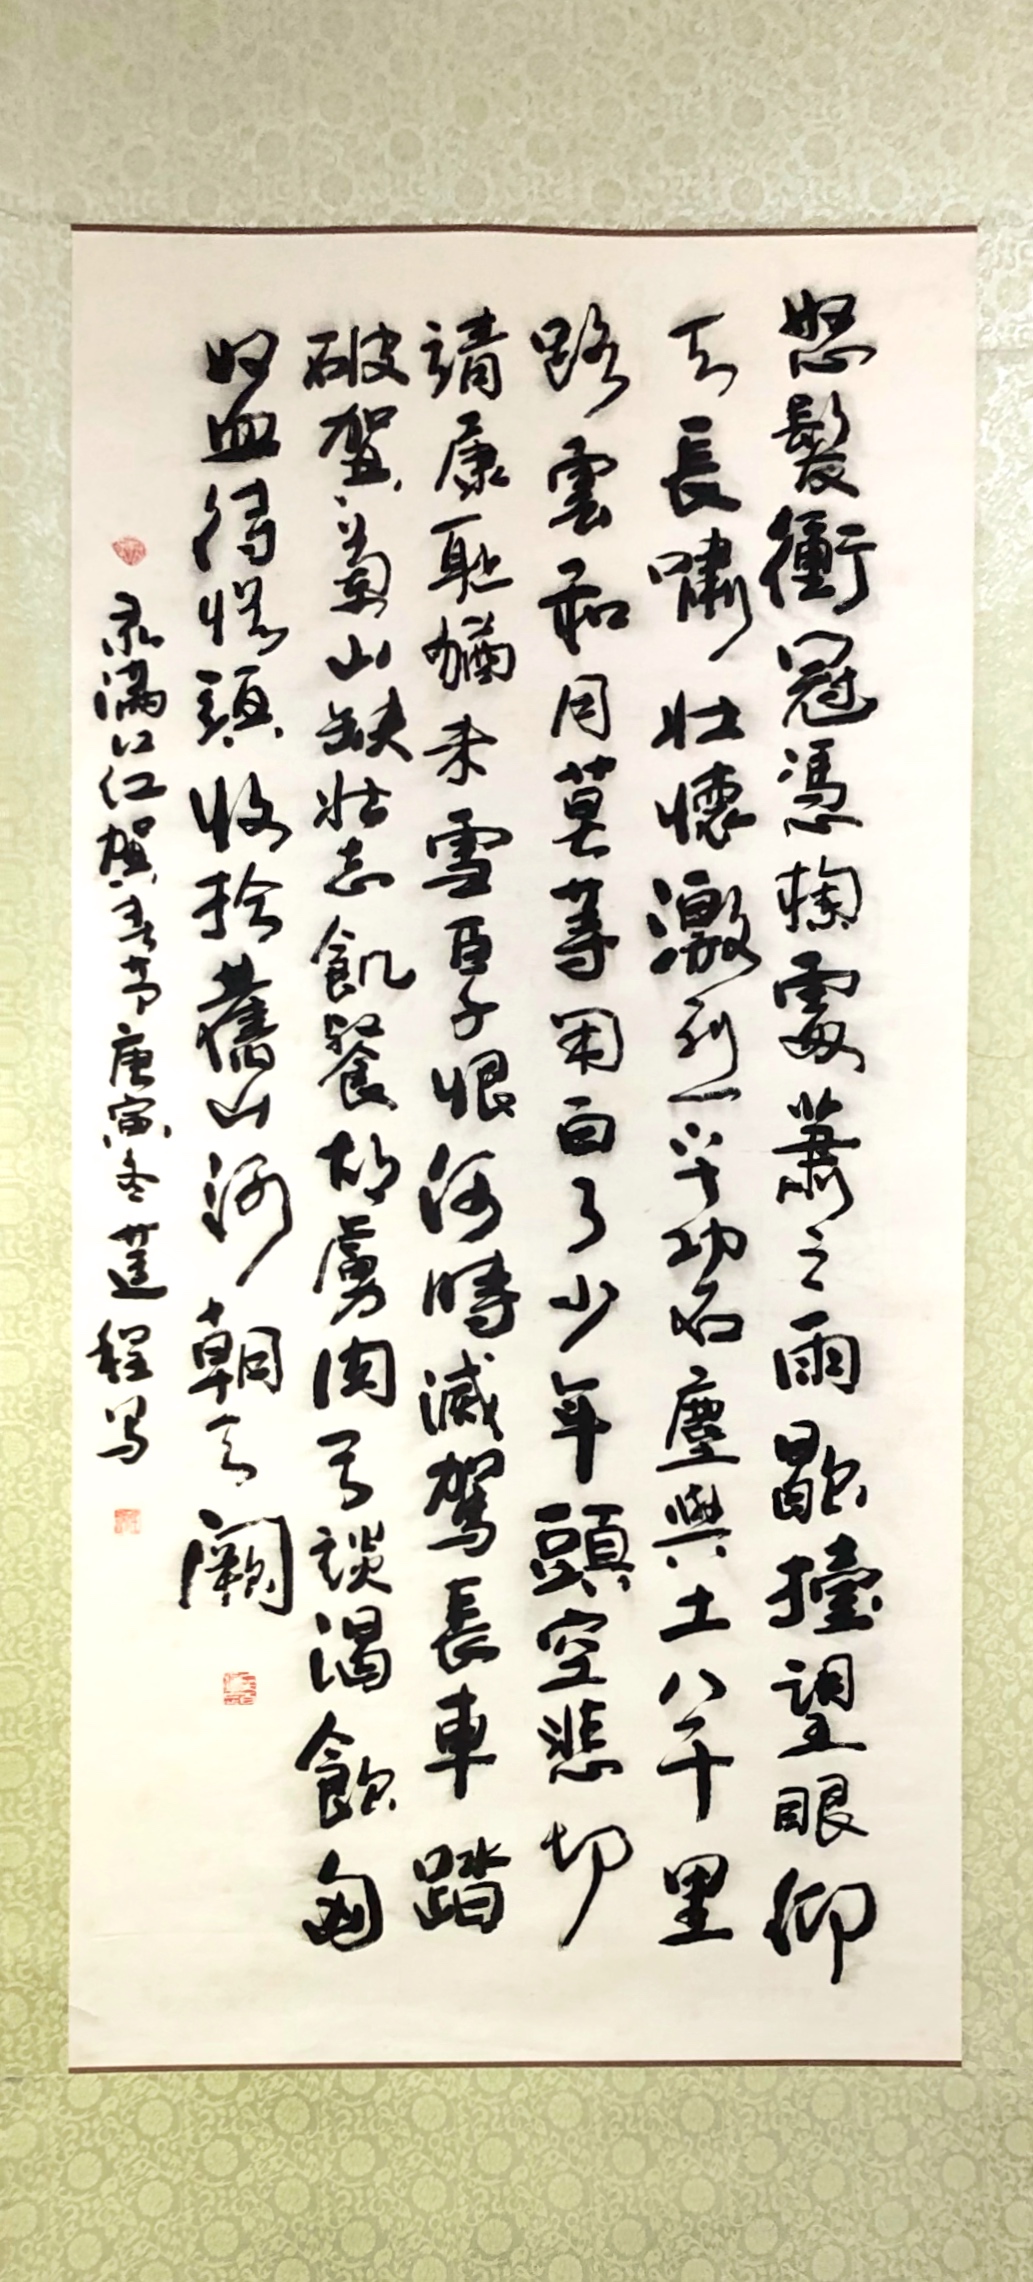 怒髮衝冠憑欄處蕭々雨歇擡望眼仰
天長嘯壯懷激烈三十功名塵與土八千里
路雲和月莫等閑白了少年頭空悲切
靖康恥猶未雪臣子恨何時滅駕長車踏
破賀蘭山缺壯志飢餐胡虜肉笑談渴飲匈
奴血待從頭收拾舊山河朝天闕
录滿江红賀庚寅冬蓮程写